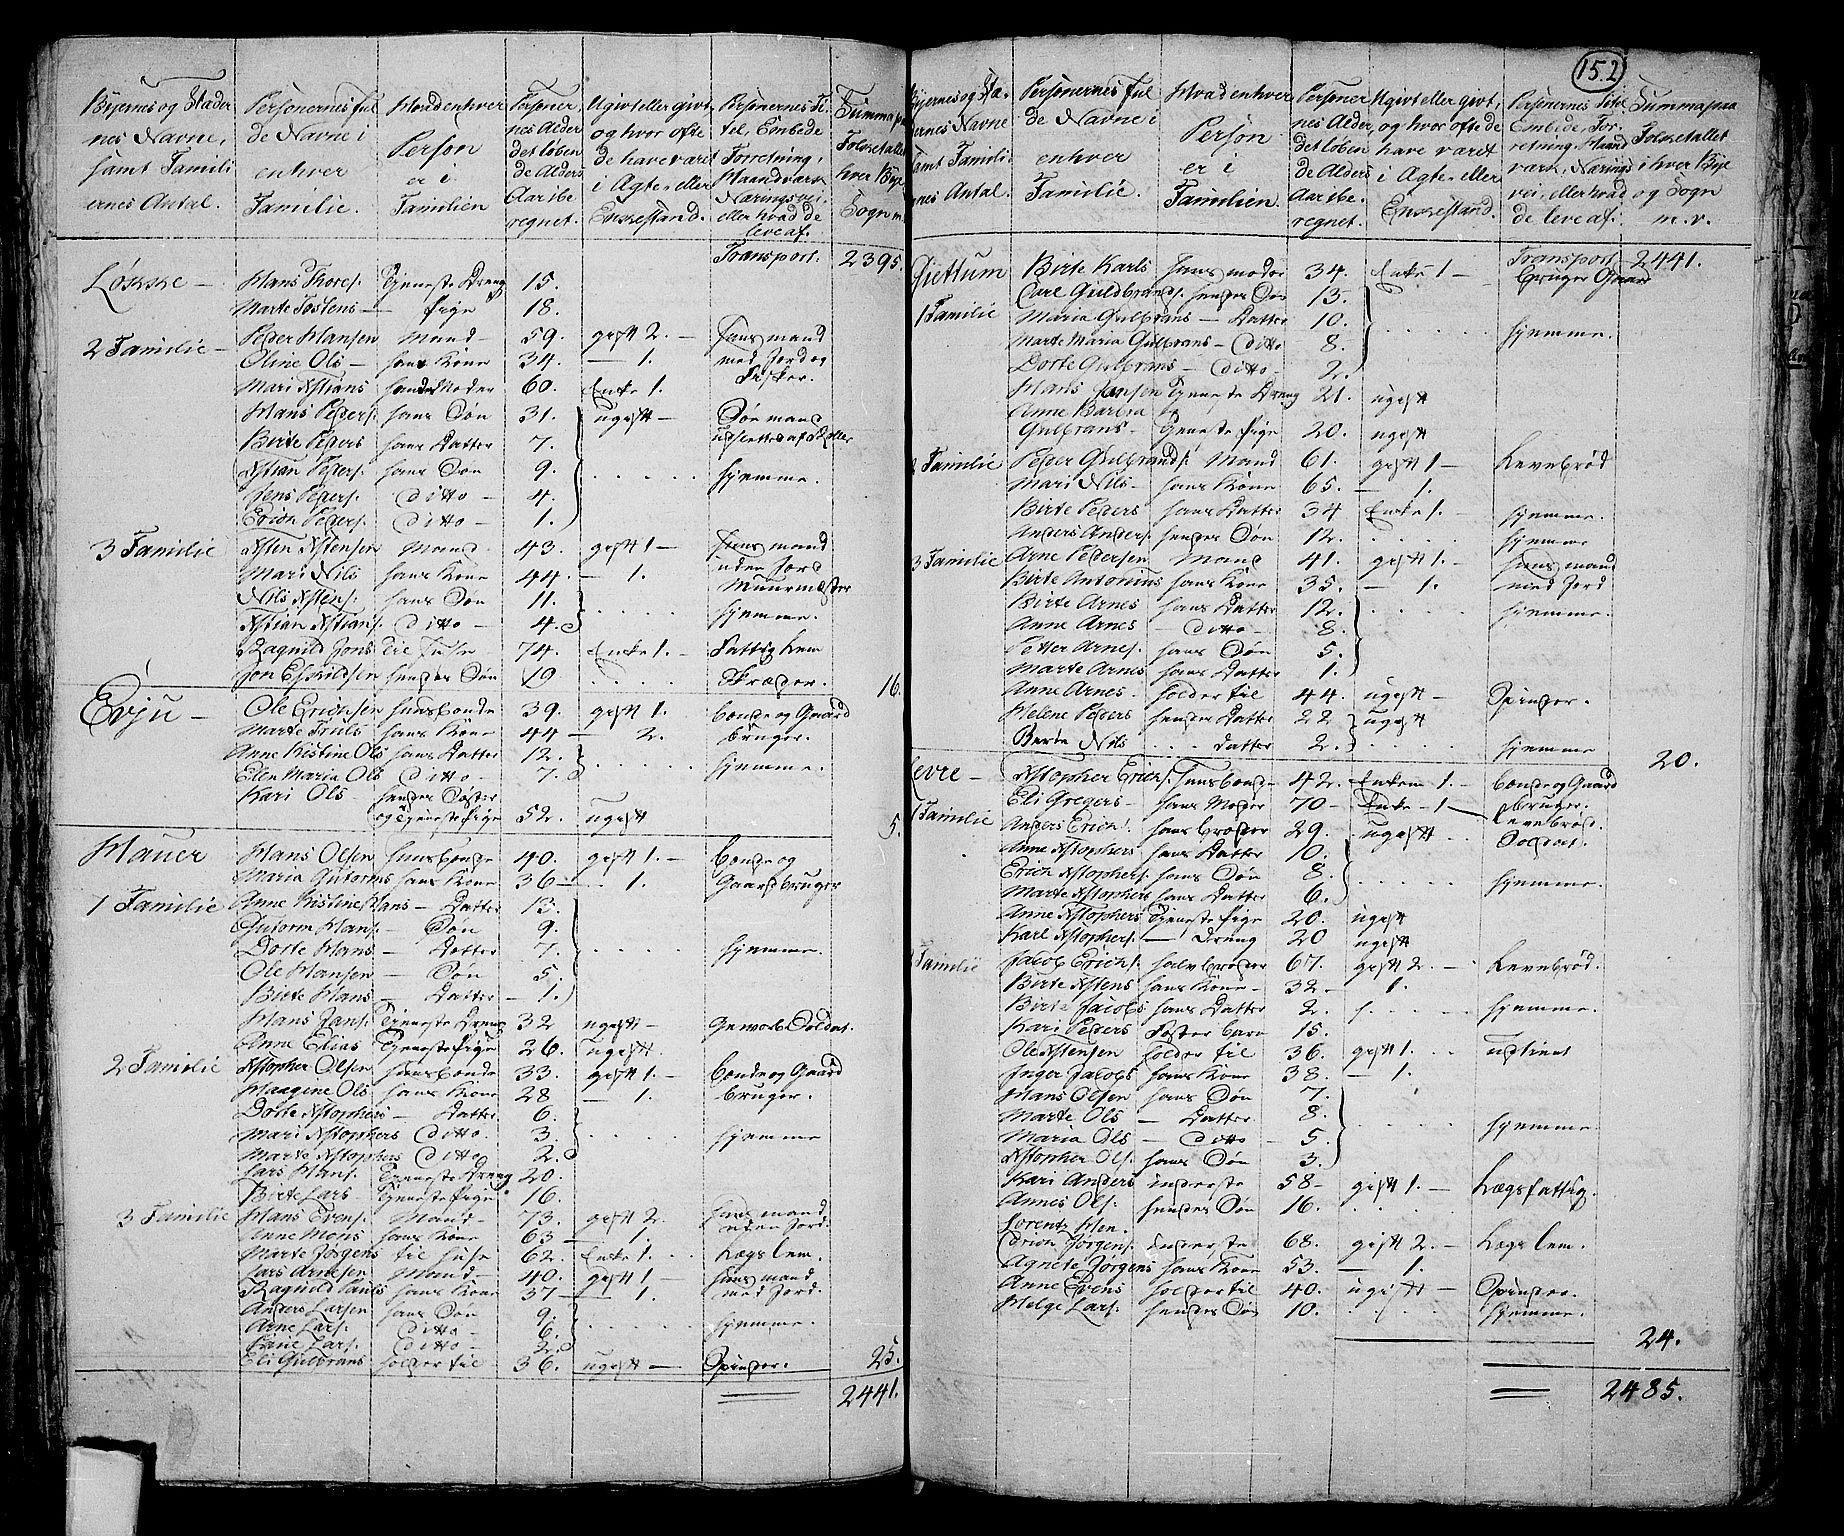 152
Byernes og Stæder
nes Navne,
samt Famili
ernes Antal.
Personernes ful
de Navne i
enhver
Familie.
Hvad enhver
Person
er i
Familien
Personer
nes Alder
det løben
de Alders
Aar ibe
regnet.
Ugivt eller givt,
og hvor ofte
de have været
i Ægte- eller
Enkestand.
Personernes Ti
tel, Embede
Forretning,
Haandværk
Næringsvei
eller hvad de
leve af.
Summa paa
Folketallet
hver Bye
Sogn m.
Transport. 2395.
Løkke — Hans Thores. Tjeneste Dreng 15.
Marte Tostens — Pige 18.
2 Familie — Peder Hansen Mand — 59. gift 2. — Huusmand
Oline Ols — hans Kone 34. — 1. med Jord og
Mari Kstians hendes Moder 60. Enke 1. Fisker.
Hans Peders. hans Søn 31. ugift — Søe mand
Birte Peders hans Datter 7.
Kstian Peders. hans Søn 9. hjemme.
Jens Peders. ditto — 4.
Erich Peders. ditto — 1.
3 Familie Asten Astensen Mand 43. gift 1 — Huusmand
Mari Nils hans Kone 44. — 1. uden Jord
Nils Astens. hans Søn 11. Muurmester
Kstian Kstians. ditto — 4. hjemme.
Ragnild Jons til Huse — 74. Enke 1. — Fattig Lem
Jon Eskildsen hendes Søn 19. Skræder. 16.
Evju — Ole Erichsen Huusbonde 39. gift 1. Bonde og Gaard
Marte Truls hans Kone 44 — 2. bruger.
Anne Kistine Ols hans Datter 12.
Elen Maria Ols ditto — 7. hjemme.
Kari Ols — hendes Søster
og Tjeneste Pige 52. ugift 5.
Hauer Hans Olsen Huusbonde 40. gift 1. — Bonde og
Maria Gutorms hans Kone 36 — 1. Gaardbruger
1 Familie Anne Kistine Hans — Datter 13.
Gutorm Hans. — Søn 9.
Dorte Hans — Datter 7. hjemme.
Ole Hansen — Søn 5.
Birte Hans — Datter — 1.
Hans Jans. Tjeneste Dreng 32 ugift — Gevorb. Soldat.
Anne Elias Tjeneste Pige 26. ugift.
2 Familie Kstopher Olsen Huusbonde 33. gift 1. — Bonde og Gaard
Maagine Ols hans Kone 28 — 1. bruger.
Dorte Kstophers — Datter 6.
Mari Kstophers ditto. 3. hjemme
Marte Kstophers ditto 2.
Lars Hans. Tjeneste Dreng 20.
Birte Lars Tjeneste Pige 16.
3 Familie Hans Evens. Mand — 73. gift 2. Huusmand
Anne Mons hans Kone 63 — 1. uden Jord.
Marte Jørgens til Huse 62. Enke 1. Lægslem.
Lars Arnesen Mand — 40. gift 1. Huusmand
Ragnild Pauls hans Kone 37 — 1. med Jord.
Anders Larsen hans Søn 9.
Arne Lars. ditto — 6. hjemme.
Lars. ditto — 2.
Eli Gulbrans holder til — 36. ugift — Spinder. 25.
2441.
Byernes og Stæ
dernes Navne
samt Famili
ernes Antal.
Personernes ful
de Navne i
enhver
Familie.
Hvad enhver
Person
er i
Familien
Personer
nes Alder,
det løben
de Alders
Aar ibe
regnet.
Ugivt eller givt,
og hvor ofte de
have været
i Ægte- eller
Enkestand.
Personernes Titel
Embede, For
retning, Haand
værk, Nærings
vei, eller hvad
de leve af.
Summa paa
Folketallet
i hver Bye
og Sogn
m. v.
Transport 2441.
Gjettum Birte Karls Huus moder 34. Enke 1 — bruger Gaard
Carl Guldbrands. hendes Søn 13.
1 Familie Maria Gulbrans — Datter 10.
Marte Maria Gulbrans — ditto 8. hjemme.
Dorte Gulbrans — ditto — 2.
Hans Jensen Tjeneste Dreng 21. ugift
Anne Barbra
Gulbrans — Tjeneste Pige 20. ugift
2 Familie Peder Gulbrands. Mand 61. gift 1 — Levebrød
Mari Nils — hans Kone 65. — 1.
Birte Peders hans Datter 34 Enke 1. — hjemme.
Anders Anders. hendes Søn 12. hjemme
3 Familie Arne Pedersen Mand 41. gift 1. — Huusmand
Birte Antonius hans Kone 35. — 1. med Jord
Birte Arnes hans Datter 12. hjemme.
Anne Arnes — ditto — 8.
Petter Arnes. hans Søn 5.
Marte Arnes hans Datter 1.
Anne Arnes. holder til 44. ugift — Spinder.
Helene Peders hendes Datter 22 ugift
Berte Nils — Datter 2. hjemme
20.
Levre — Kstopher Erichs. Huusbonde 42. Enkem 1. — Bonde og Gaard
Eli Gregers — hans Moder 70 — Enke — 1 — bruger.
Levebrød.
1 Familie Anders Erichs. hans broder 29. ugift — Soldat.
Anne Kstophers hans Datter 10.
Erich Kstophers. hans Søn 8. hjemme.
Marte Kstophers hans Datter 6.
Anne Kstophers Tjeneste Pige 20. ugift
Karl Kstophers. — Dreng 20 ugift
Familie Jacob Erichs. halv broder 67. gift 2. — Levebrød.
Birte Astens hans Kone — 32 — 1.
Birte Jacobs hans Datter 2. hjemme.
Kari Peders Foster barn 15.
Ole Astensen holder til 36. gift 1. udtient
Inger Jacobs hans Kone 38. — 1.
Hans Olsen hans Søn 7.
Marte Ols — Datter 8. hjemme.
Maria Ols — ditto — 5.
Kstopher Ols. hans Søn 3.
Kari Anders inderste 58 — gift 1. — Lægsfattig.
Annes Ols. hendes Søn 16.
Lorentz Hen
drich Jørgens. inderste 68. gift 2. — Lægs lem.
Agnete Jørgens hans Kone 53. — 1.
Anne Evens holder til 40. ugift — Spinder.
Helge Lars. hendes Søn 10. hjemme.
24.
2485.